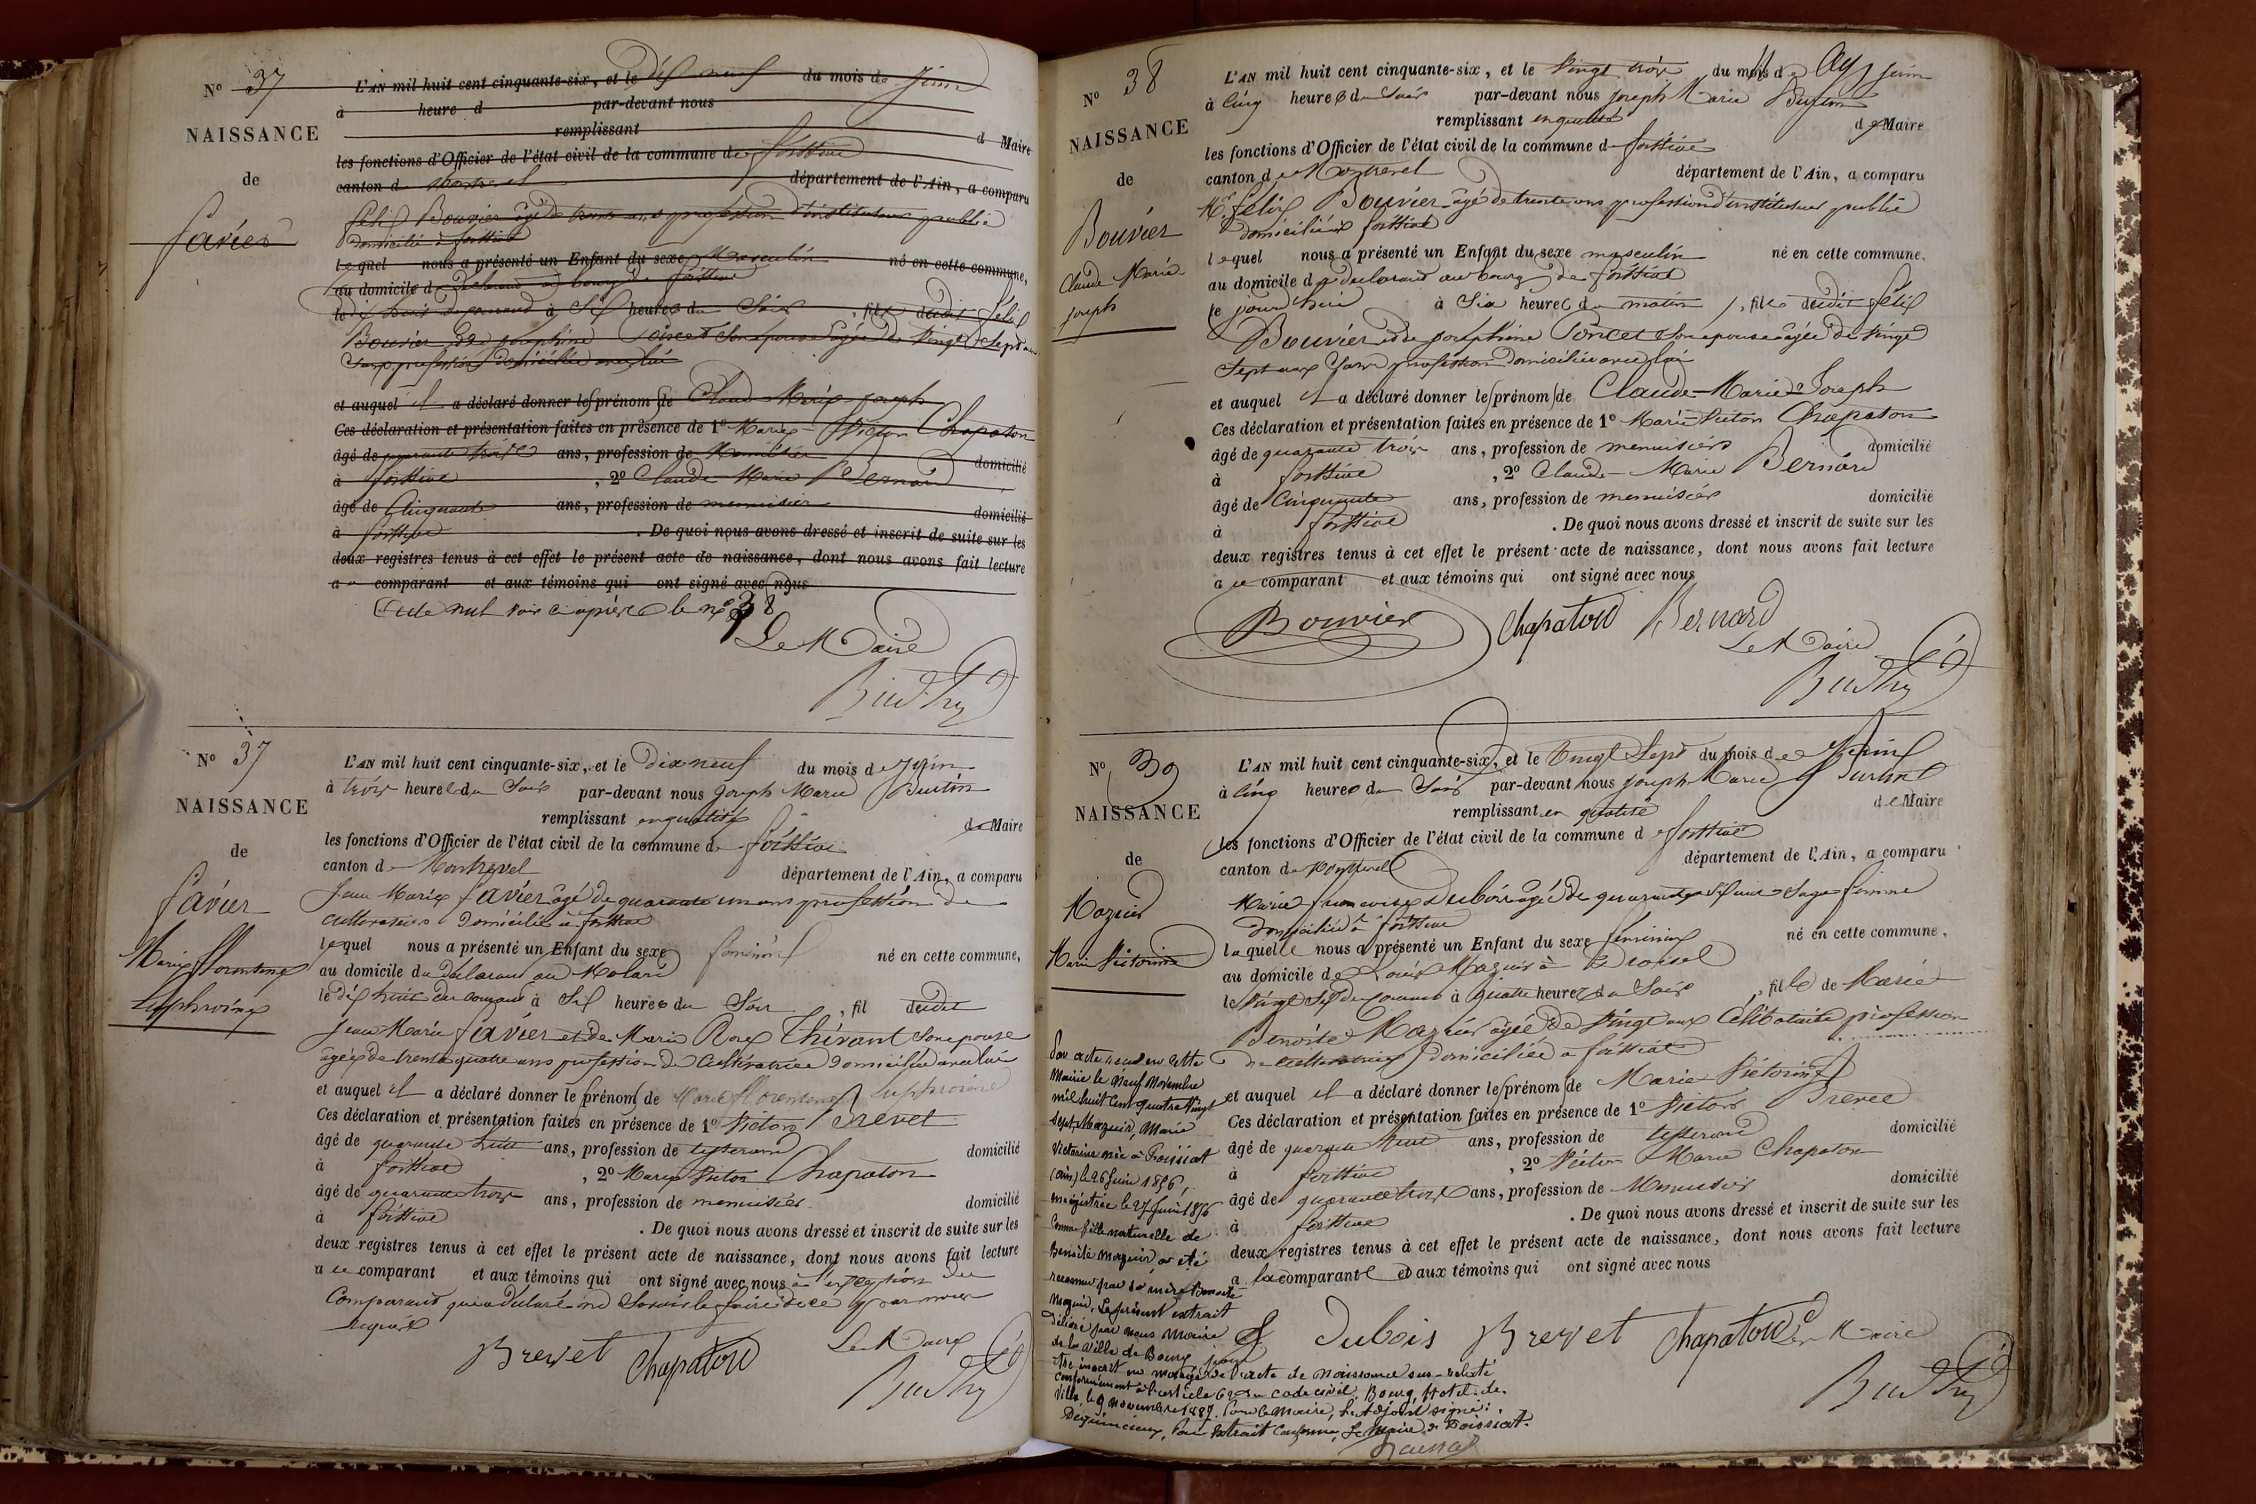 N° 37
NAISSANCE
de
favier
L'AN mil huit cent cinquante-six, et le dix neuf du mois de Juin
à heure d par-devant nous
remplissant d Maire
les fonctions d'Officier de l'état civil de la commune de foissiat
canton de Montrevel département de l'Ain, a comparu
félix Bouvier âgé de trente ans profession d'instituteur public
domicilié à foissiat
lequel nous a présenté un Enfant du sexe Masculin né en cette commune,
au domicile du déclarant au bourg de foissiat
le dix huit du courant à Six heures du Soir, fils dudit félix
Bouvier et de josephine Poncet Son épouse âgée de vingt Sept ans
Sans profession domiciliée avec lui
et auquel il a déclaré donner les prénom de Claude Marie joseph
Ces déclaration et présentation faites en présence de 1° Marie Victor Chapaton
âgé de quarante trois ans, profession de Menuisier domicilié
à foissiat, 2° Claude Marie Bernard
âgé de Cinquante ans, profession de menuisier domicilié
à foissiat. De quoi nous avons dressé et inscrit de suite sur les
deux registres tenus à cet effet le présent acte de naissance, dont nous avons fait lecture
a comparant et aux témoins qui ont signé avec nous
Acte nul voir ci après le n° 38
Le Maire
N° 37
NAISSANCE
de
favier
Marie florentine
Euphroisine
L'AN mil huit cent cinquante-six, et le Dix neuf du mois de Juin
à trois heures du Soir par-devant nous Joseph Marie Buitin
remplissant en qualité de Maire
les fonctions d'Officier de l'état civil de la commune de foissiat
canton de Montrevel département de l'Ain, a comparu
Jean Marie favier âgé de quarante un ans profession de
cultivateur domicilié à foissiat
lequel nous a présenté un Enfant du sexe féminin né en cette commune,
au domicile du déclarant au Molard
le dix huit du courant à Six heures du Soir, fil dudit
Jean Marie favier et de Marie Rose Thévant Son épouse
âgée de trente quatre ans profession de Cultivatrice domiciliée avec lui
et auquel il a déclaré donner le prénom de Marie florentine
Ces déclaration et présentation faites en présence de 1° Victor Brevet
âgé de quarante huit ans, profession de tisserand domicilié
à foissiat, 2° Marie Victor Chapaton
âgé de quarante trois ans, profession de menuisier domicilié
à foissiat. De quoi nous avons dressé et inscrit de suite sur les
deux registres tenus à cet effet le présent acte de naissance, dont nous avons fait lecture
a ce comparant et aux témoins qui ont signé avec nous à l'exception du
Comparant qui a déclaré ne Savoir le faire de ce par nous
requis
Brevet Chapatou Le Maire
N° 38
NAISSANCE
de
Bouvier
Claude Marie
joseph
L'AN mil huit cent cinquante-six, et le Vingt trois du mois de juin
à Cinq heures du Soir par-devant nous joseph Marie Buitin
remplissant en qualité de Maire
les fonctions d'Officier de l'état civil de la commune de foissiat
canton de Montrevel département de l'Ain, a comparu
Mr félix Bouvier âgé de trente ans profession d'instituteur public
domicilié à foissiat
lequel nous a présenté un Enfant du sexe masculin né en cette commune.
au domicile du déclarant au bourg de foissiat
le jour d'hier à Six heures du matin, fils dudit félix
Bouvier et de josephine Poncet Son épouse âgée de Vingt
Sept ans Sans profession domiciliée avec lui
et auquel il a déclaré donner les prénom de Claude-Marie-Joseph
Ces déclaration et présentation faites en présence de 1° Marie Victor Chapaton
âgé de quarante trois ans, profession de menuisier domicilié
à foissiat, 2° Claude-Marie Bernard
âgé de Cinquante ans, profession de menuisier domicilié
à foissiat. De quoi nous avons dressé et inscrit de suite sur les
deux registres tenus à cet effet le présent acte de naissance, dont nous avons fait lecture
a ce comparant et aux témoins qui ont signé avec nous
Bouvier Chapatou Bernard
Le Maire
N° 39
NAISSANCE
de
Mazuir
Marie Victorine
L'AN mil huit cent cinquante-six, et le Vingt Sept du mois de Juin
à Cinq heures du Soir par-devant nous joseph Marie
remplissant en qualité de Maire
les fonctions d'Officier de l'état civil de la commune de foissiat
canton de Montrevel département de l'Ain, a comparu
Marie francoise Dubois âgée de quarante Sage femme
domiciliée à foissiat
laquelle nous a présenté un Enfant du sexe féminin né en cette commune.
au domicile de Louis Mazuir à
le Vingt Six du courant à quatre heures du Soir, fille de Marie
Benoite Mazuir âgée de Vingt ans Célibataire profession
de cultivatrice domiciliée à foissiat
et auquel il a déclaré donner les prénom de Marie Victorine
Ces déclaration et présentation faites en présence de 1° Victor Brevet
âgé de quarante huit ans, profession de tisserand domicilié
à foissiat, 2° Victor Marie Chapaton
âgé de quarante trois ans, profession de Menuisier domicilié
à foissiat. De quoi nous avons dressé et inscrit de suite sur les
deux registres tenus à cet effet le présent acte de naissance, dont nous avons fait lecture
a la comparante et aux témoins qui ont signé avec nous
Dubois Brevet Chapatou Le Maire
Par acte reçu en cette
Mairie le neuf Novembre
mil huit cent quatre vingt
sept, Mazuir, Marie
Victorine née à Foissiat
(ain) le 26 Juin 1856,
enregistrée le 27 Juin 1856
comme fille naturelle de
Benoite Mazuir a été
reconnue par sa mère Benoite
Mazuir. Le présent extrait
délivré par nous Maire
de la Ville de Bourg pour
être inscrit en marge de l'acte de naissance sus-relaté
conformément à l'article 62 du code civil. Bourg, Hotel-de-
Ville, le 9 novembre 1887. Pour le Maire, L'Adjoint signé:
Pour Extrait Conforme, Le Maire de Foissiat.